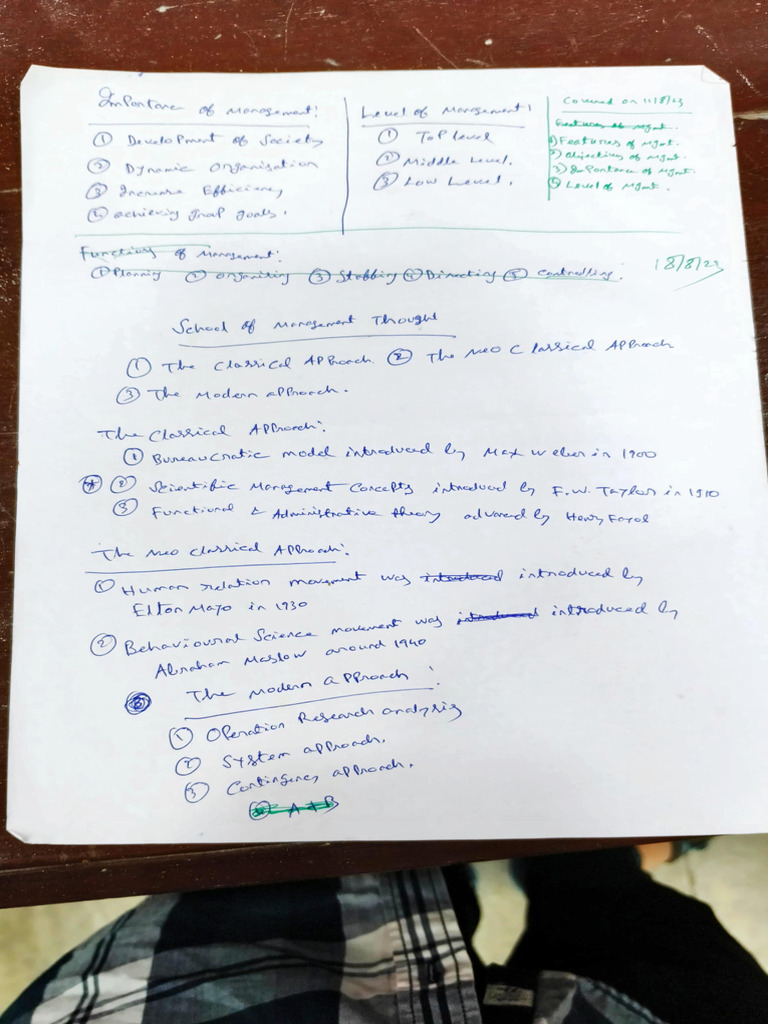 Importance of Management:
① Development of Society
② Dynamic Organisation
③ Increase Efficiency
④ achieving goals.
Level of Management:
① Top level
② Middle Level.
③ Low Level.
Covered on 11/8/23
Features of Mgmt.
1) Features of Mgmt.
2) Objectives of Mgmt.
3) Importance of Mgmt.
④ Level of Mgmt.
Functions of Management:
① Planning ② Organising ③ Staffing ④ Directing ⑤ Controlling.
18/8/23
School of Management Thought
① The Classical Approach ② The Neo Classical Approach
③ The Modern approach.
The Classical Approach:
① Bureaucratic model introduced by Max Weber in 1900
* ② Scientific Management Concepts introduced by F.W. Taylor in 1910
③ Functional & Administrative theory advanced by Henry Fayol
The Neo Classical Approach:
① Human relation movement was introduced by
Elton Mayo in 1930
② Behavioural Science movement was introduced by
Abraham Maslow around 1940
The Modern approach:
① Operation Research analysis
② System approach.
③ Contingency approach.
A & B